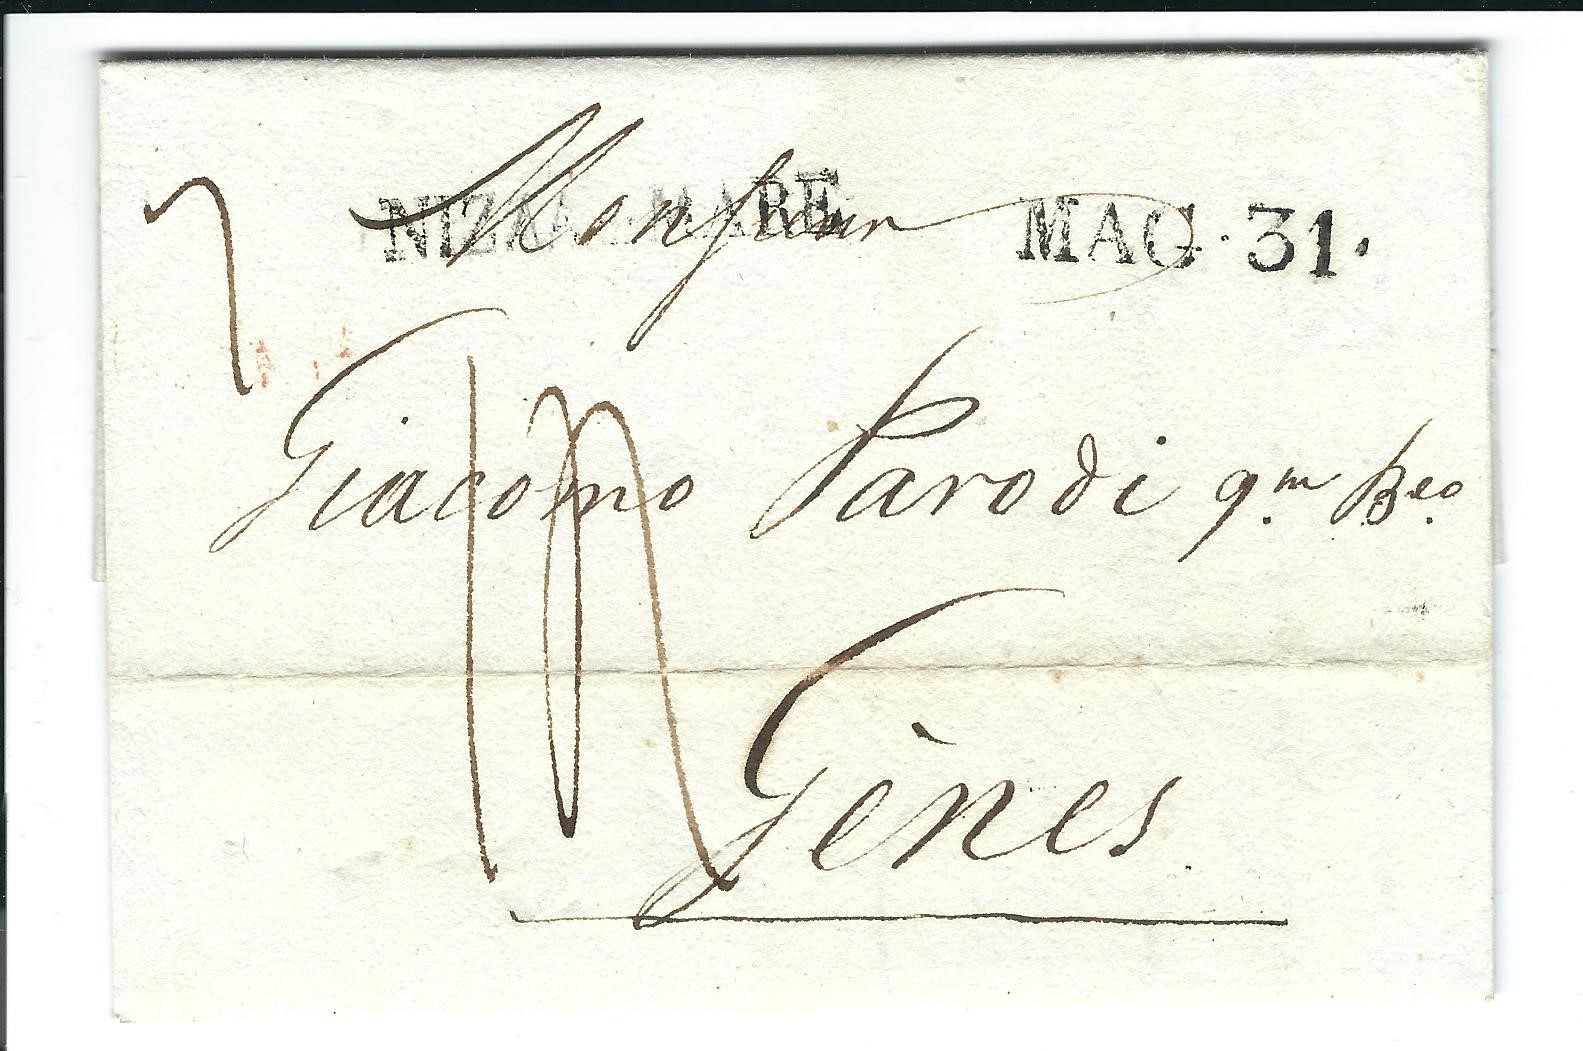 NIZZA-MARE
MAG. 31.
Monsieur
Giacomo Parodi qm. Beo.
Gènes